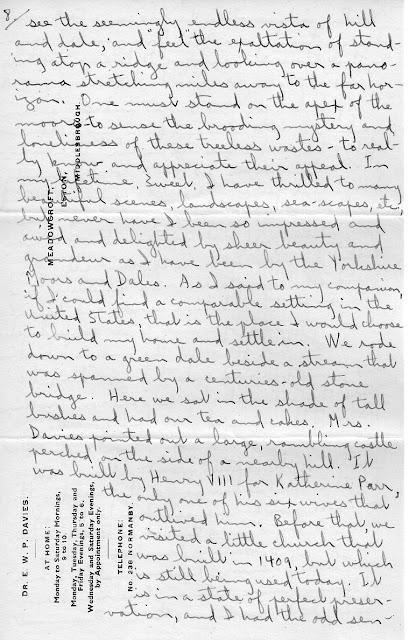 8/
see the seemingly endless vista of hill
and dale, and "feel" the exaltation of stand-
ing atop a ridge and looking over a pano-
rama stretching miles away to the far hor-
izon. One must stand on the apex of the
moors to sense the brooding mystery and
loneliness of these treeless wastes - to real-
ly know and appreciate their appeal. In
my lifetime, Sweet, I have thrilled to many
beautiful scenes, landscapes, sea-scapes, etc.,
but never have I been so impressed and
awed and delighted by sheer beauty and
grandeur as I have been by the Yorkshire
Moors and Dales. As I said to my companion,
if I could find a comparable setting in the
United States, that is the place I would choose
to build my home and settle in. We rode
down to a green dale beside a stream that
was spanned by a centuries-old stone
bridge. Here we sat in the shade of tall
bushes and had our tea and cakes. Mrs.
Davies pointed out a large, rambling castle
perched on the side of a nearby hill. It
was built by Henry VIII for Katherine Parr,
the only one of his six wives that
outlived him. Before that, we
visited a little church that
was built in 1409, but which
is still being used today. It
is in a state of perfect preser-
vation, and I had the odd sen-
MEADOWCROFT,
ESTON,
MIDDLESBROUGH.
DR. E. W. P. DAVIES.
AT HOME:
Monday to Saturday Mornings,
9 to 10.
Monday, Tuesday, Thursday and
Friday Evenings, 5 to 6.
Wednesday and Saturday Evenings,
by Appointment only.
TELEPHONE:
No. 238 NORMANBY.